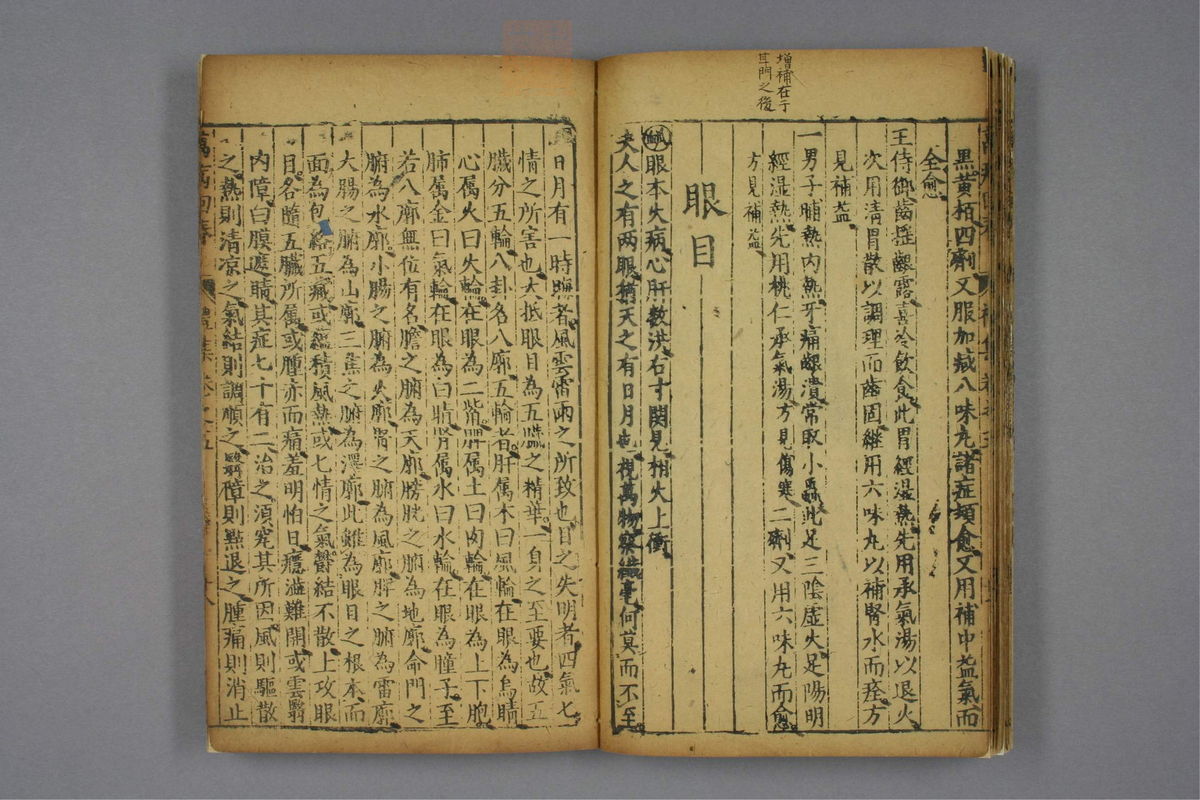 增補在于
耳門之後
黑黄栢四劑又服加减八味丸諸症頓愈又用補中益氣而
全愈
王侍御齒搖齦露喜冷飲食此胃經湿熱先用承氣湯以退火
次用清胃散以調理而齒固継用六味丸以補腎水而痊方
見補益
一男子晡熱内熱牙痛齦潰常取小蟲此足三陰虛火足陽明
經湿熱先用桃仁承氣湯方見傷寒二劑又用六味丸而愈
方見補益
眼目
眼本火病心肝数洪右寸関見相火上衝
夫人之有两眼猶天之有日月也視萬物察纖毫何莫而不至
日月有一時晦者風雲雷雨之所致也目之失明者四氣七
情之所害也大抵眼目為五臟之精華一身之至要也故五
臟分五輪八卦名八廓五輪者肝属木曰風輪在眼為烏睛
心属火曰火輪在眼為二眥脾属土曰肉輪在眼為上下胞
肺属金曰氣輪在眼為白睛腎属水曰水輪在眼為瞳子至
若八廓無位有名膽之腑為天廓膀胱之腑為地廓命門之
腑為水廓小腸之腑為火廓腎之腑為風廓脾之腑為雷廓
大腸之腑為山廓三蕉之腑為澤廓此雖為眼目之根本而
面為包絡五臟或蘊積風熱或七情之氣欝結不散上攻眼
目各隨五臟所属或腫赤而痛羞明怕日癮澁難開或雲翳
内障曰膜遮睛其症七十有二治之須究其所因風則驅散
之熱則清凉之氣結則調順之翳障則點退之腫痛則消止
萬病回春